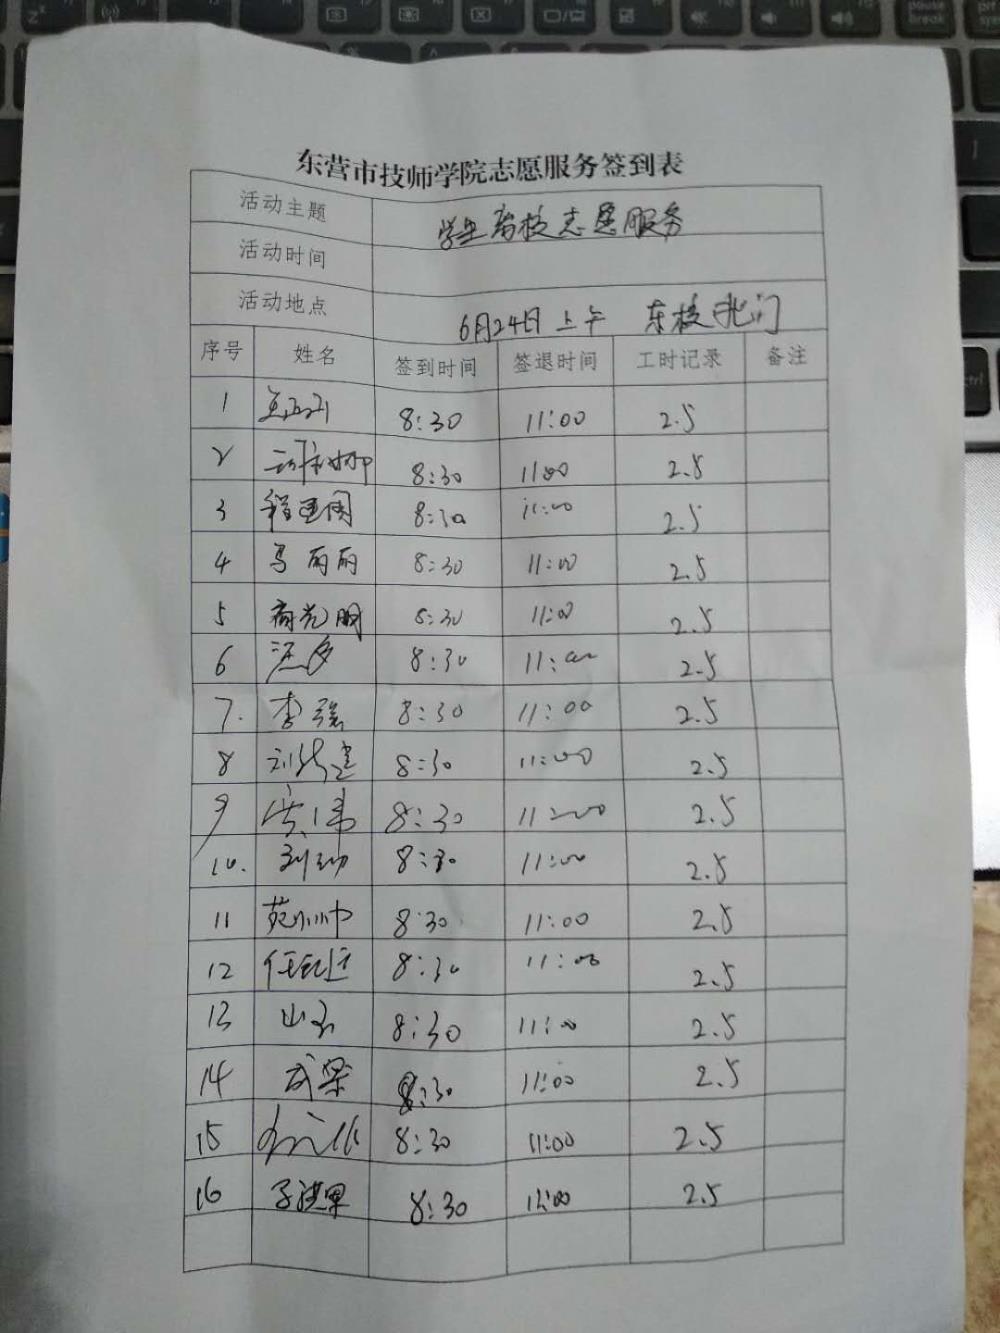 东营市技师学院志愿服务签到表
活动主题 学生离校志愿服务
活动时间
活动地点 6月24日上午 东校北门
序号 姓名 签到时间 签退时间 工时记录 备注
1 8:30 11:00 2.5
2 8:30 11:00 2.5
3 程建国 8:30 11:00 2.5
4 马丽丽 8:30 11:00 2.5
5 商光明 8:30 11:00 2.5
6 8:30 11:00 2.5
7. 李强 8:30 11:00 2.5
8 8:30 11:00 2.5
9 8:30 11:00 2.5
10. 8:30 11:00 2.5
11 苑小帅 8:30 11:00 2.5
12 8:30 11:00 2.5
13 8:30 11:00 2.5
14 武梁 8:30 11:00 2.5
15 8:30 11:00 2.5
16 8:30 11:00 2.5